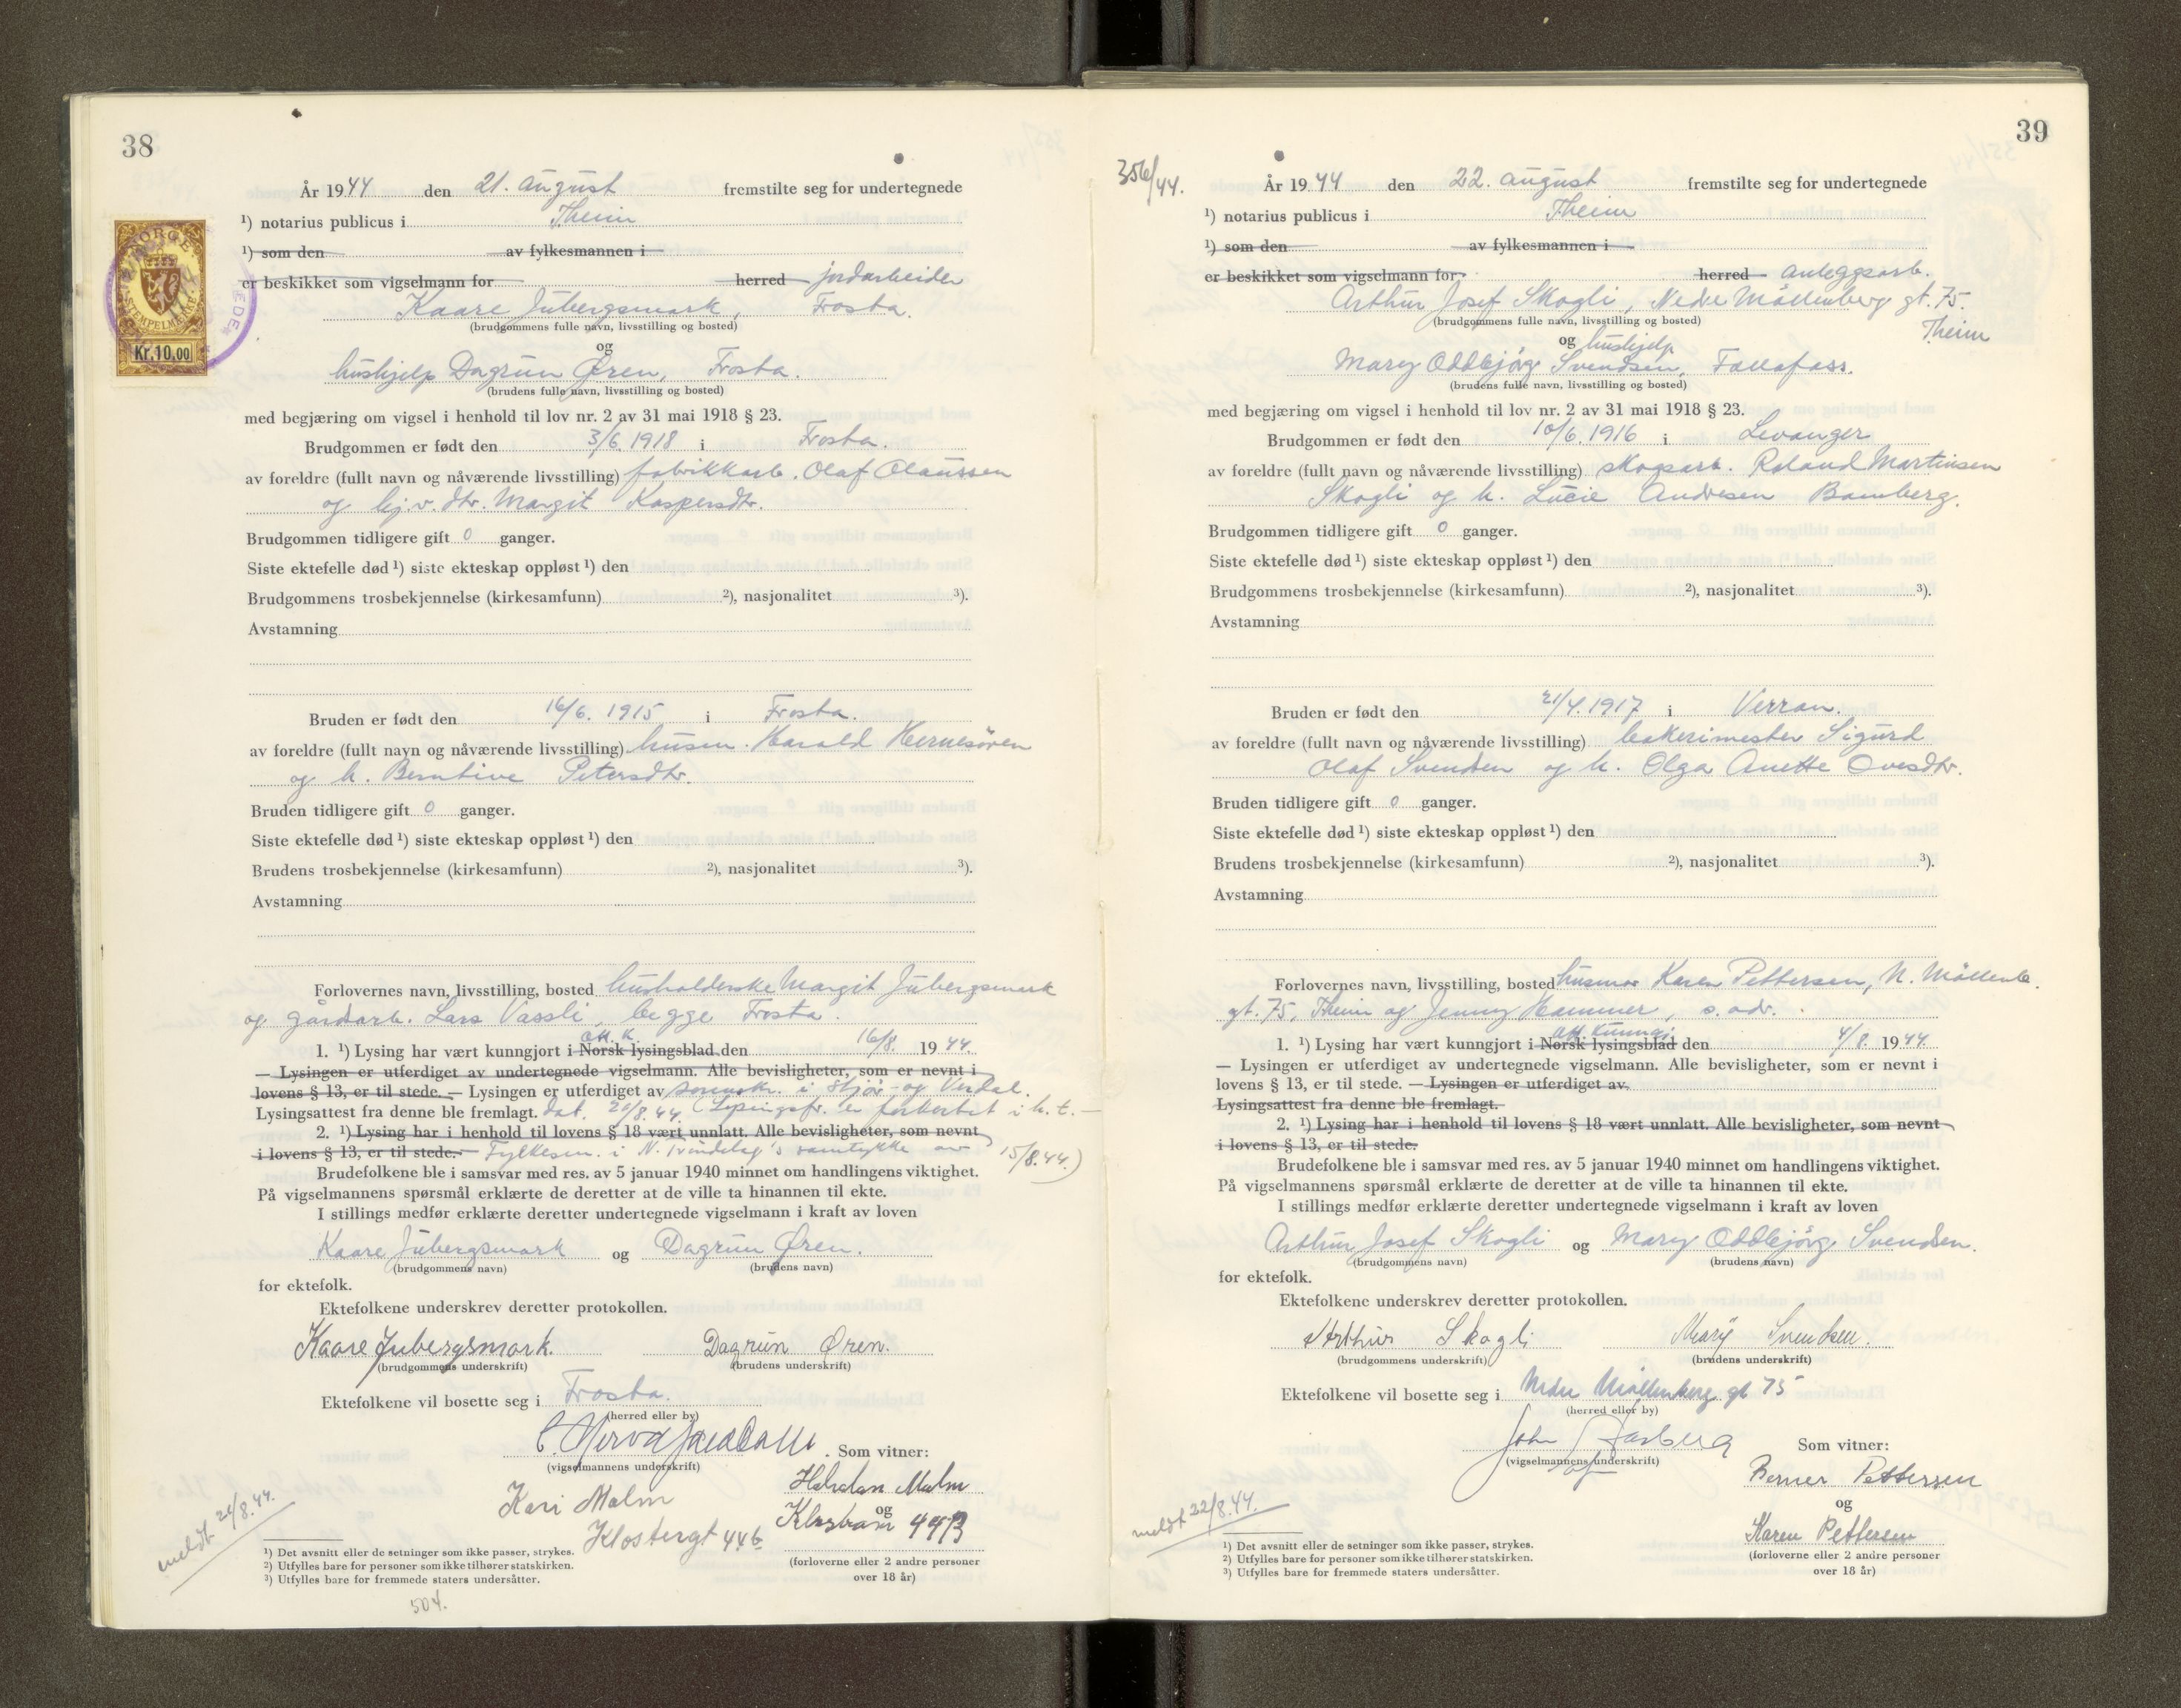 38
År 1944 den 21. august fremstilte seg for undertegnede
¹) notarius publicus i Theim
¹) som den av fylkesmannen i
er beskikket som vigselmann for herred jordarbeider
Kaare Jubergsmark, Frosta.
(brudgommens fulle navn, livsstilling og bosted)
og
hushjelp Dagrun Øren, Frosta.
(brudens fulle navn, livsstilling og bosted)
med begjæring om vigsel i henhold til lov nr. 2 av 31 mai 1918 § 23.
Brudgommen er født den 3/6. 1918 i Frosta.
av foreldre (fullt navn og nåværende livsstilling) fabrikkarb. Olaf Olaussen
og Margit Kaspersdtr.
Brudgommen tidligere gift 0 ganger.
Siste ektefelle død ¹) siste ekteskap oppløst ¹) den
Brudgommens trosbekjennelse (kirkesamfunn) ²), nasjonalitet ³).
Avstamning
Bruden er født den 16/6. 1915 i Frosta.
av foreldre (fullt navn og nåværende livsstilling) husm. Harald Hernesøren
og h. Berntine Petersdtr.
Bruden tidligere gift 0 ganger.
Siste ektefelle død ¹) siste ekteskap oppløst ¹) den
Brudens trosbekjennelse (kirkesamfunn) ²), nasjonalitet ³).
Avstamning
Forlovernes navn, livsstilling, bosted husholderske Margit Jubergsmark
og gårdarb. Lars Vassli, begge Frosta.
att. k.
1. ¹) Lysing har vært kunngjort i Norsk lysingsblad den 16/8. 1944.
— Lysingen er utferdiget av undertegnede vigselmann. Alle bevisligheter, som er nevnt i
lovens § 13, er til stede. — Lysingen er utferdiget av sorenskr. i Stjør- og Verdal.
Lysingsattest fra denne ble fremlagt. dat. 20/8.44. (Lysingsfr. er forkortet i h. t. —
2. ¹) Lysing har i henhold til lovens § 18 vært unnlatt. Alle bevisligheter, som nevnt
i lovens § 13, er til stede. Fylkesm. i N. Trøndelag's samtykke av 15/8.44.)
Brudefolkene ble i samsvar med res. av 5 januar 1940 minnet om handlingens viktighet.
På vigselmannens spørsmål erklærte de deretter at de ville ta hinannen til ekte.
I stillings medfør erklærte deretter undertegnede vigselmann i kraft av loven
Kaare Jubergsmark og Dagrun Øren.
(brudgommens navn) (brudens navn)
for ektefolk.
Ektefolkene underskrev deretter protokollen.
Kaare Jubergsmark. Dagrun Øren.
(brudgommens underskrift) (brudens underskrift)
Ektefolkene vil bosette seg i Frosta.
(herred eller by)
Som vitner:
(vigselmannens underskrift)
Kari Malm Halvdan Malm
og
Klostergt 44b
(forloverne eller 2 andre personer
over 18 år)
meldt 24/8.44.
¹) Det avsnitt eller de setninger som ikke passer, strykes.
²) Utfylles bare for personer som ikke tilhører statskirken.
³) Utfylles bare for fremmede staters undersåtter.
504.
NORGE
STEMPELMERKE
Kr.10,00
39
356/44.
År 1944 den 22. august fremstilte seg for undertegnede
¹) notarius publicus i Theim
¹) som den av fylkesmannen i
er beskikket som vigselmann for herred anleggsarb.
Arthur Josef Skogli, Nedre Møllenberg gt. 75.
(brudgommens fulle navn, livsstilling og bosted)
Theim
og hushjelp
Mary Oddbjørg Svendsen, Follafoss.
(brudens fulle navn, livsstilling og bosted)
med begjæring om vigsel i henhold til lov nr. 2 av 31 mai 1918 § 23.
Brudgommen er født den 10/6. 1916 i Levanger
av foreldre (fullt navn og nåværende livsstilling) skogsarb. Roland Martinsen
Skogli og h. Lucie Andresen Bamberg.
Brudgommen tidligere gift 0 ganger.
Siste ektefelle død ¹) siste ekteskap oppløst ¹) den
Brudgommens trosbekjennelse (kirkesamfunn) ²), nasjonalitet ³).
Avstamning
Bruden er født den 21/4. 1917 i Verran.
av foreldre (fullt navn og nåværende livsstilling) bakerimester Sigurd
Olaf Svendsen og h. Olga Anette Ovesdtr.
Bruden tidligere gift 0 ganger.
Siste ektefelle død ¹) siste ekteskap oppløst ¹) den
Brudens trosbekjennelse (kirkesamfunn) ²), nasjonalitet ³).
Avstamning
Forlovernes navn, livsstilling, bosted husmor Karen Pettersen, N. Møllenb.
gt. 75, Theim og Jenny Hammer, s. adr.
off. kunngj.
1. ¹) Lysing har vært kunngjort i Norsk lysingsblad den 4/8. 1944
— Lysingen er utferdiget av undertegnede vigselmann. Alle bevisligheter, som er nevnt i
lovens § 13, er til stede. — Lysingen er utferdiget av
Lysingsattest fra denne ble fremlagt.
2. ¹) Lysing har i henhold til lovens § 18 vært unnlatt. Alle bevisligheter, som nevnt
i lovens § 13, er til stede.
Brudefolkene ble i samsvar med res. av 5 januar 1940 minnet om handlingens viktighet.
På vigselmannens spørsmål erklærte de deretter at de ville ta hinannen til ekte.
I stillings medfør erklærte deretter undertegnede vigselmann i kraft av loven
Arthur Josef Skogli og Mary Oddbjørg Svendsen.
(brudgommens navn) (brudens navn)
for ektefolk.
Ektefolkene underskrev deretter protokollen.
Arthur Skogli Mary Svendsen.
(brudgommens underskrift) (brudens underskrift)
Ektefolkene vil bosette seg i Nedre Møllenberg gt 75
(herred eller by)
John Som vitner:
(vigselmannens underskrift)
Berner Pettersen
og
Karen Pettersen
(forloverne eller 2 andre personer
over 18 år)
meldt 22/8.44.
¹) Det avsnitt eller de setninger som ikke passer, strykes.
²) Utfylles bare for personer som ikke tilhører statskirken.
³) Utfylles bare for fremmede staters undersåtter.